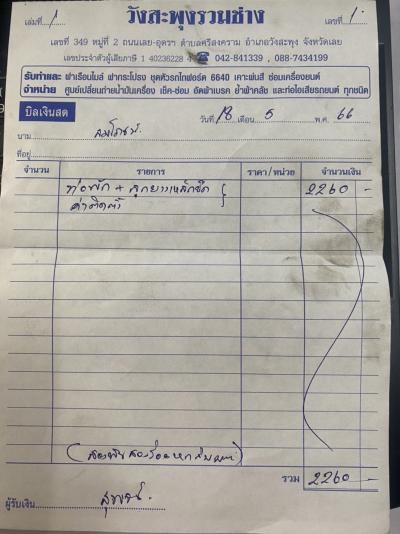 เล่มที่ 1 เลขที่ 1
วังสะพุงรวมช่าง
เลขที่ 349 หมู่ที่ 2 ถนนเลย-อุดรฯ ตำบลศรีสงคราม อำเภอวังสะพุง จังหวัดเลย
เลขประจำตัวผู้เสียภาษี 1 40236228 4 ☎ 042-841339 , 088-7434199
รับทำและ ฝาเรือนไมล์ ฝากระโปรง ชุดหัวรถไถฟอร์ด 6640 เคาะพ่นสี ซ่อมเครื่องยนต์
จำหน่าย ศูนย์เปลี่ยนถ่ายน้ำมันเครื่อง เช็ค-ซ่อม อัดผ้าเบรค ย้ำผ้าคลัช และท่อไอเสียรถยนต์ ทุกชนิด
บิลเงินสด
วันที่ 18 เดือน 5 พ.ศ. 66
นาม
ที่อยู่
จำนวน รายการ ราคา/หน่วย จำนวนเงิน
ท่อพัก + ลูกยางเหล็กยึด 2260 -
ค่าติดตั้ง
(สองพันสองร้อยหกสิบบาท)
รวม 2260 -
ผู้รับเงิน